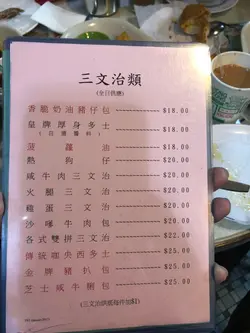 三文治類
(全日供應)
香脆奶油豬仔包 -------------- $18.00
皇牌厚身多士 -------------- $18.00
菠蘿油 -------------- $18.00
熱狗仔 -------------- $20.00
咸牛肉三文治 -------------- $20.00
火腿三文治 -------------- $20.00
雞蛋三文治 -------------- $20.00
沙嗲牛肉包 -------------- $20.00
各式雙拼三文治 -------------- $22.00
傳統啖央西多士 -------------- $25.00
金牌豬扒包 -------------- $25.00
芝士咸牛脷包 -------------- $25.00